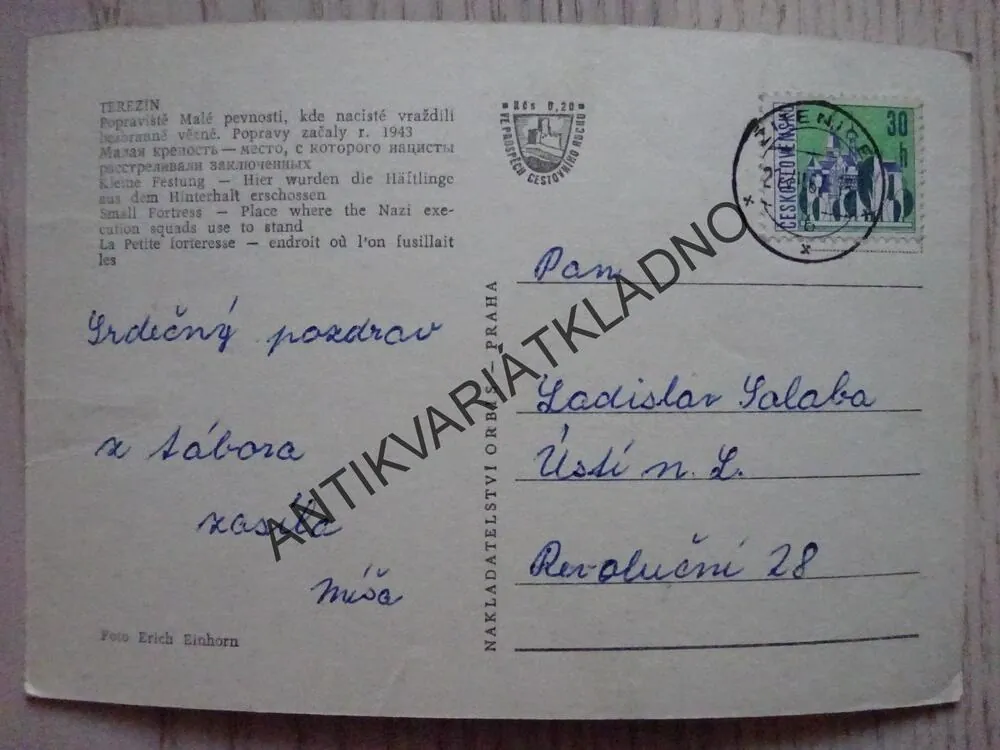 TEREZÍN
Popraviště Malé pevnosti, kde nacisté vraždili
bezbranné vězně. Popravy začaly r. 1943
Малая крепость — место, с которого нацисты
расстреливали заключенных
Kleine Festung — Hier wurden die Häftlinge
aus dem Hinterhalt erschossen
Small Fortress — Place where the Nazi exe-
cution squads use to stand
La Petite forteresse — endroit où l'on fusillait
les
Srdečný pozdrav
z tábora
zasílá
Míša
Foto Erich Einhorn
Kčs 0,20
VE PROSPĚCH CESTOVNÍHO RUCHU
NAKLADATELSTVÍ ORBIS — PRAHA
ČESKOSLOVENSKO
30
h
Pan
Ladislav Salaba
Ústí n. L.
Revoluční 28
ANTIKVARIÁTKLADNO